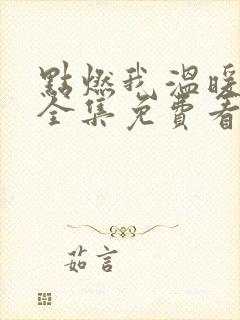 點燃我溫暖
全集免費看
茹言